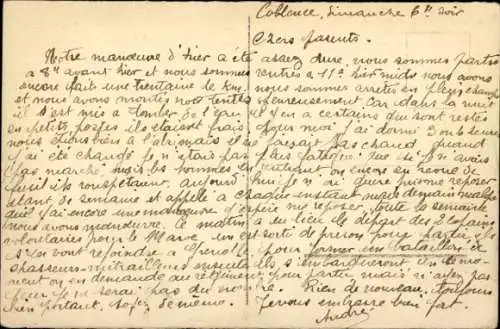 Coblence, Dimanche 6h soir
Chers parents.
Notre manœuvre d'hier a été assez dure, nous sommes partis
a 8h avant hier et nous sommes rentrés a 11h hier midi nous avons
encore fait une trentaine de km, nous sommes arretés en pleins champs
et nous avons montés nos tentes heureusement car dans la nuit
il s'est mis a tomber de l'eau il y en a certains qui sont restés
en petits postes ils étaient frais pour moi j'ai dormi 3 ou 4 heures
nous étions bien à l'abri mais il ne faisait pas chaud quand
j'ai été changé je n'étais pas plus fatigué que si je n'avais
pas marché, mais les hommes en rentrant on encore eu revue de
fusil ils rouspétaient. Aujourd'hui je n'ai guère me reposer
étant de semaine et appelé a chaque instant, malgré
que j'ai encore une manœuvre j'espère me reposer, toute la semaine
nous avons manœuvré. Ce matin a eu lieu le départ des 2 copains
volontaires pour le Maroc un est sorti de prison pour partir, ils
s'en vont rejoindre a Grenoble pour former un bataillon de
chasseurs-mitrailleurs ensuite ils s'embarqueront en ce mo-
ment on en demande au régiment pour partir mais n'ayez pas
peur je ne serai pas du nombre. Rien de nouveau, toujours
bien portant. Soyez de même. Je vous embrasse bien fort.
André